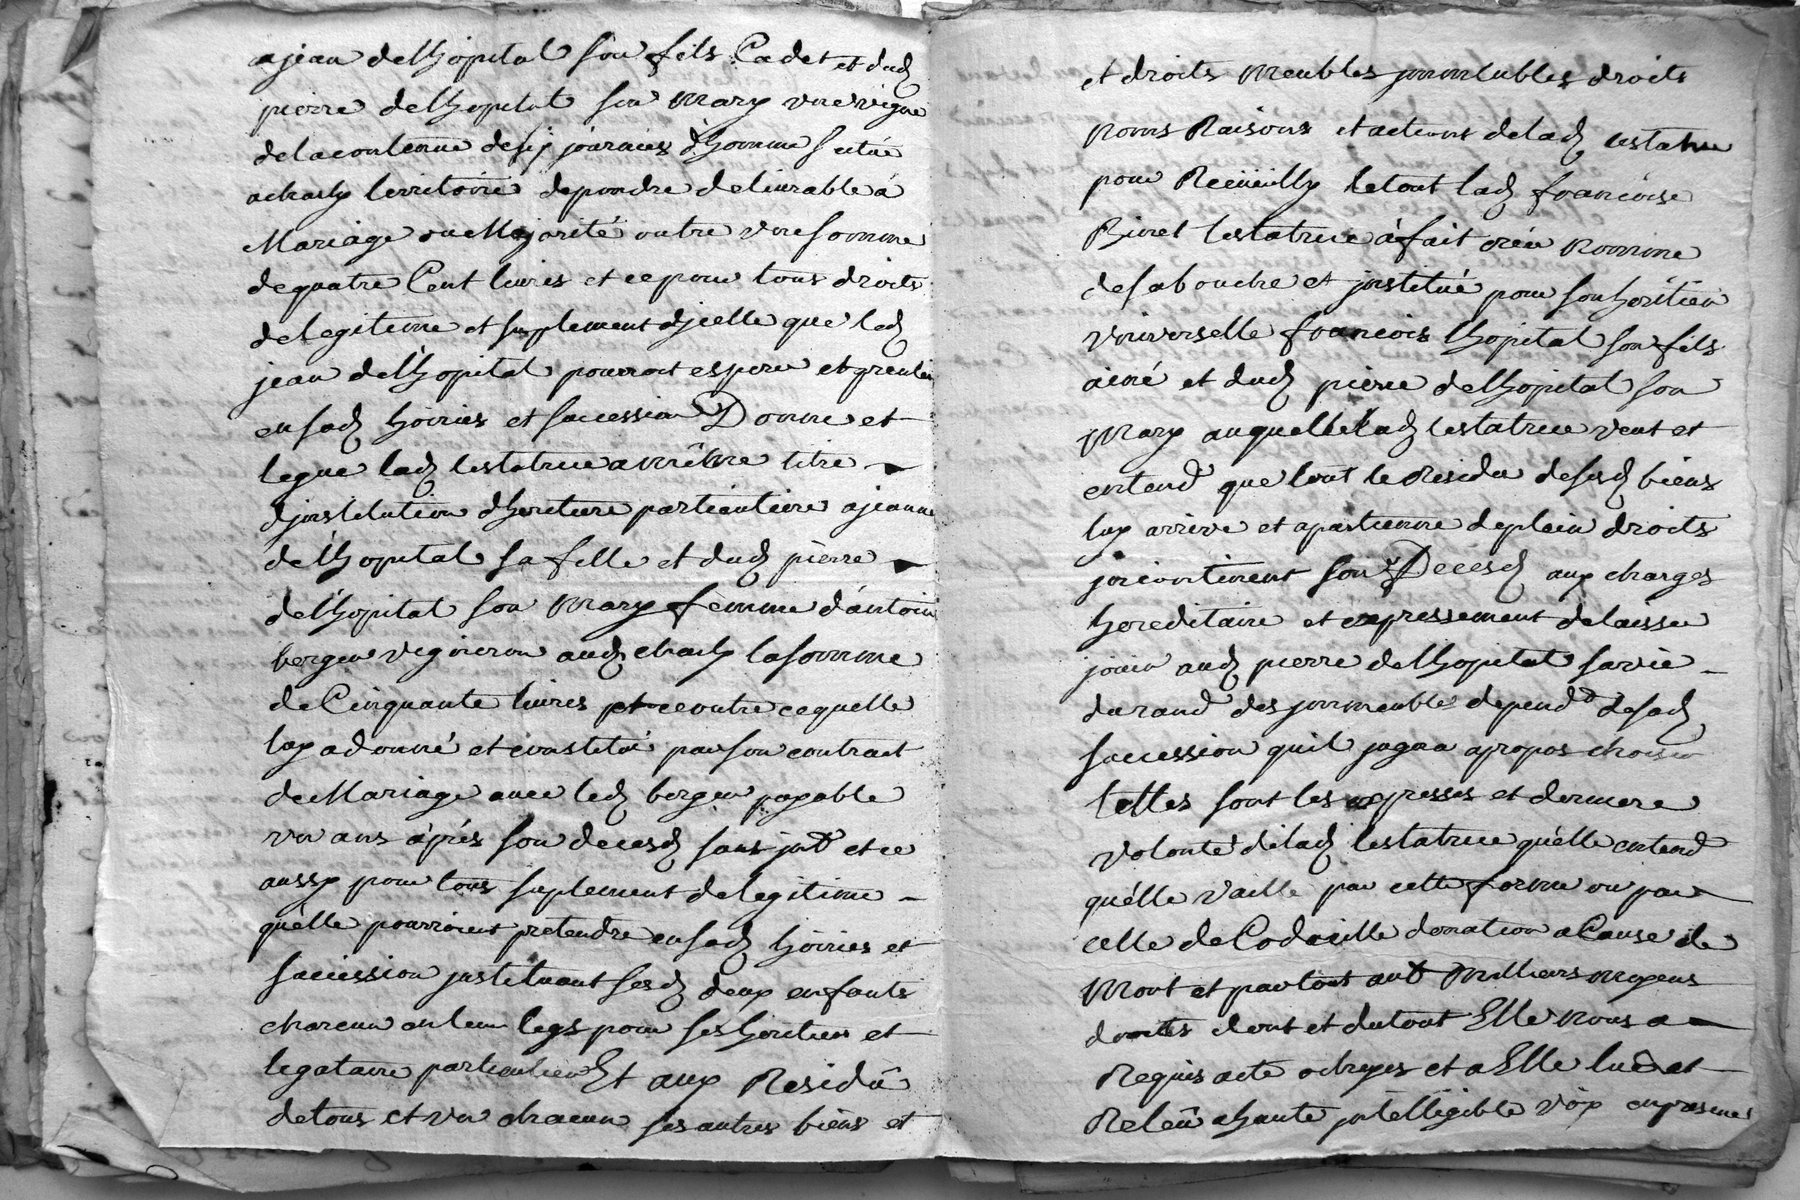 a jean delhopital son fils Cadet et dud
pierre delhopital son mary une vigne
de la contenue de six journées d'homme scituée
a charly territoire depondre delivrable á
Mariage ou Majorité outre une somme
de quatre Cent livres et ce pour tous droits
de legitime et suplement djcelle que led
jean delhopital pourroit esperer et
en sad hoiries et succession Donne et
legue lad testatrice a même titre
djnstitution dheritiere particuliere a jeanne
de lhopital sa fille et dud pierre
delhopital son mary femme dántoine
berger vigneron aud charly la somme
de Cinquante livres et ce outre ce quelle
luy a donné et constitué par son contract
de Mariage avec led berger payable
un ans áprés son deces sans jnt et ce
aussy pour tous suplement de legitime
quélle pourroient pretendre en sad hoiries et
succession jnstituant sesd deux enfants
chacun en leur legs pour ses heritiers et
legataire particuliers Et aux Residû
de tous et un chacun ses autres biens et
et droits Meubles jmmeubles droits
Noms Raisons et actions de lad testatrice
pour Recüeilly le tout lad francoise
Binet testatrice á fait créé nomme
de sa bouche et jnstitué pour son héritier
universelle francois lhopital son fils
ainé et dud pierre delhopital son
Mary auquelle lad testatrice veut et
entend que tout le Residu de sesd biens
luy arrive et apartienne de plein droits
jncontinent son Deces aux charges
hereditaire et expressement de laisser
jouir aud pierre delhopital sa vie
durand des jmmeubles depend de sad
succession quil jugera apropos choisir
telles sont les expresses et derniere
volonté dé lad testatrice quélle entend
quélle Vaille par cette forme ou par
celle de Codicille donation a Cause de
Mort et par tous aut meilleurs moyens
dont et du tout Elle nous a
Requis acte octroyes et a Elle lud et
Releu a haute jntelligible vóix en presences